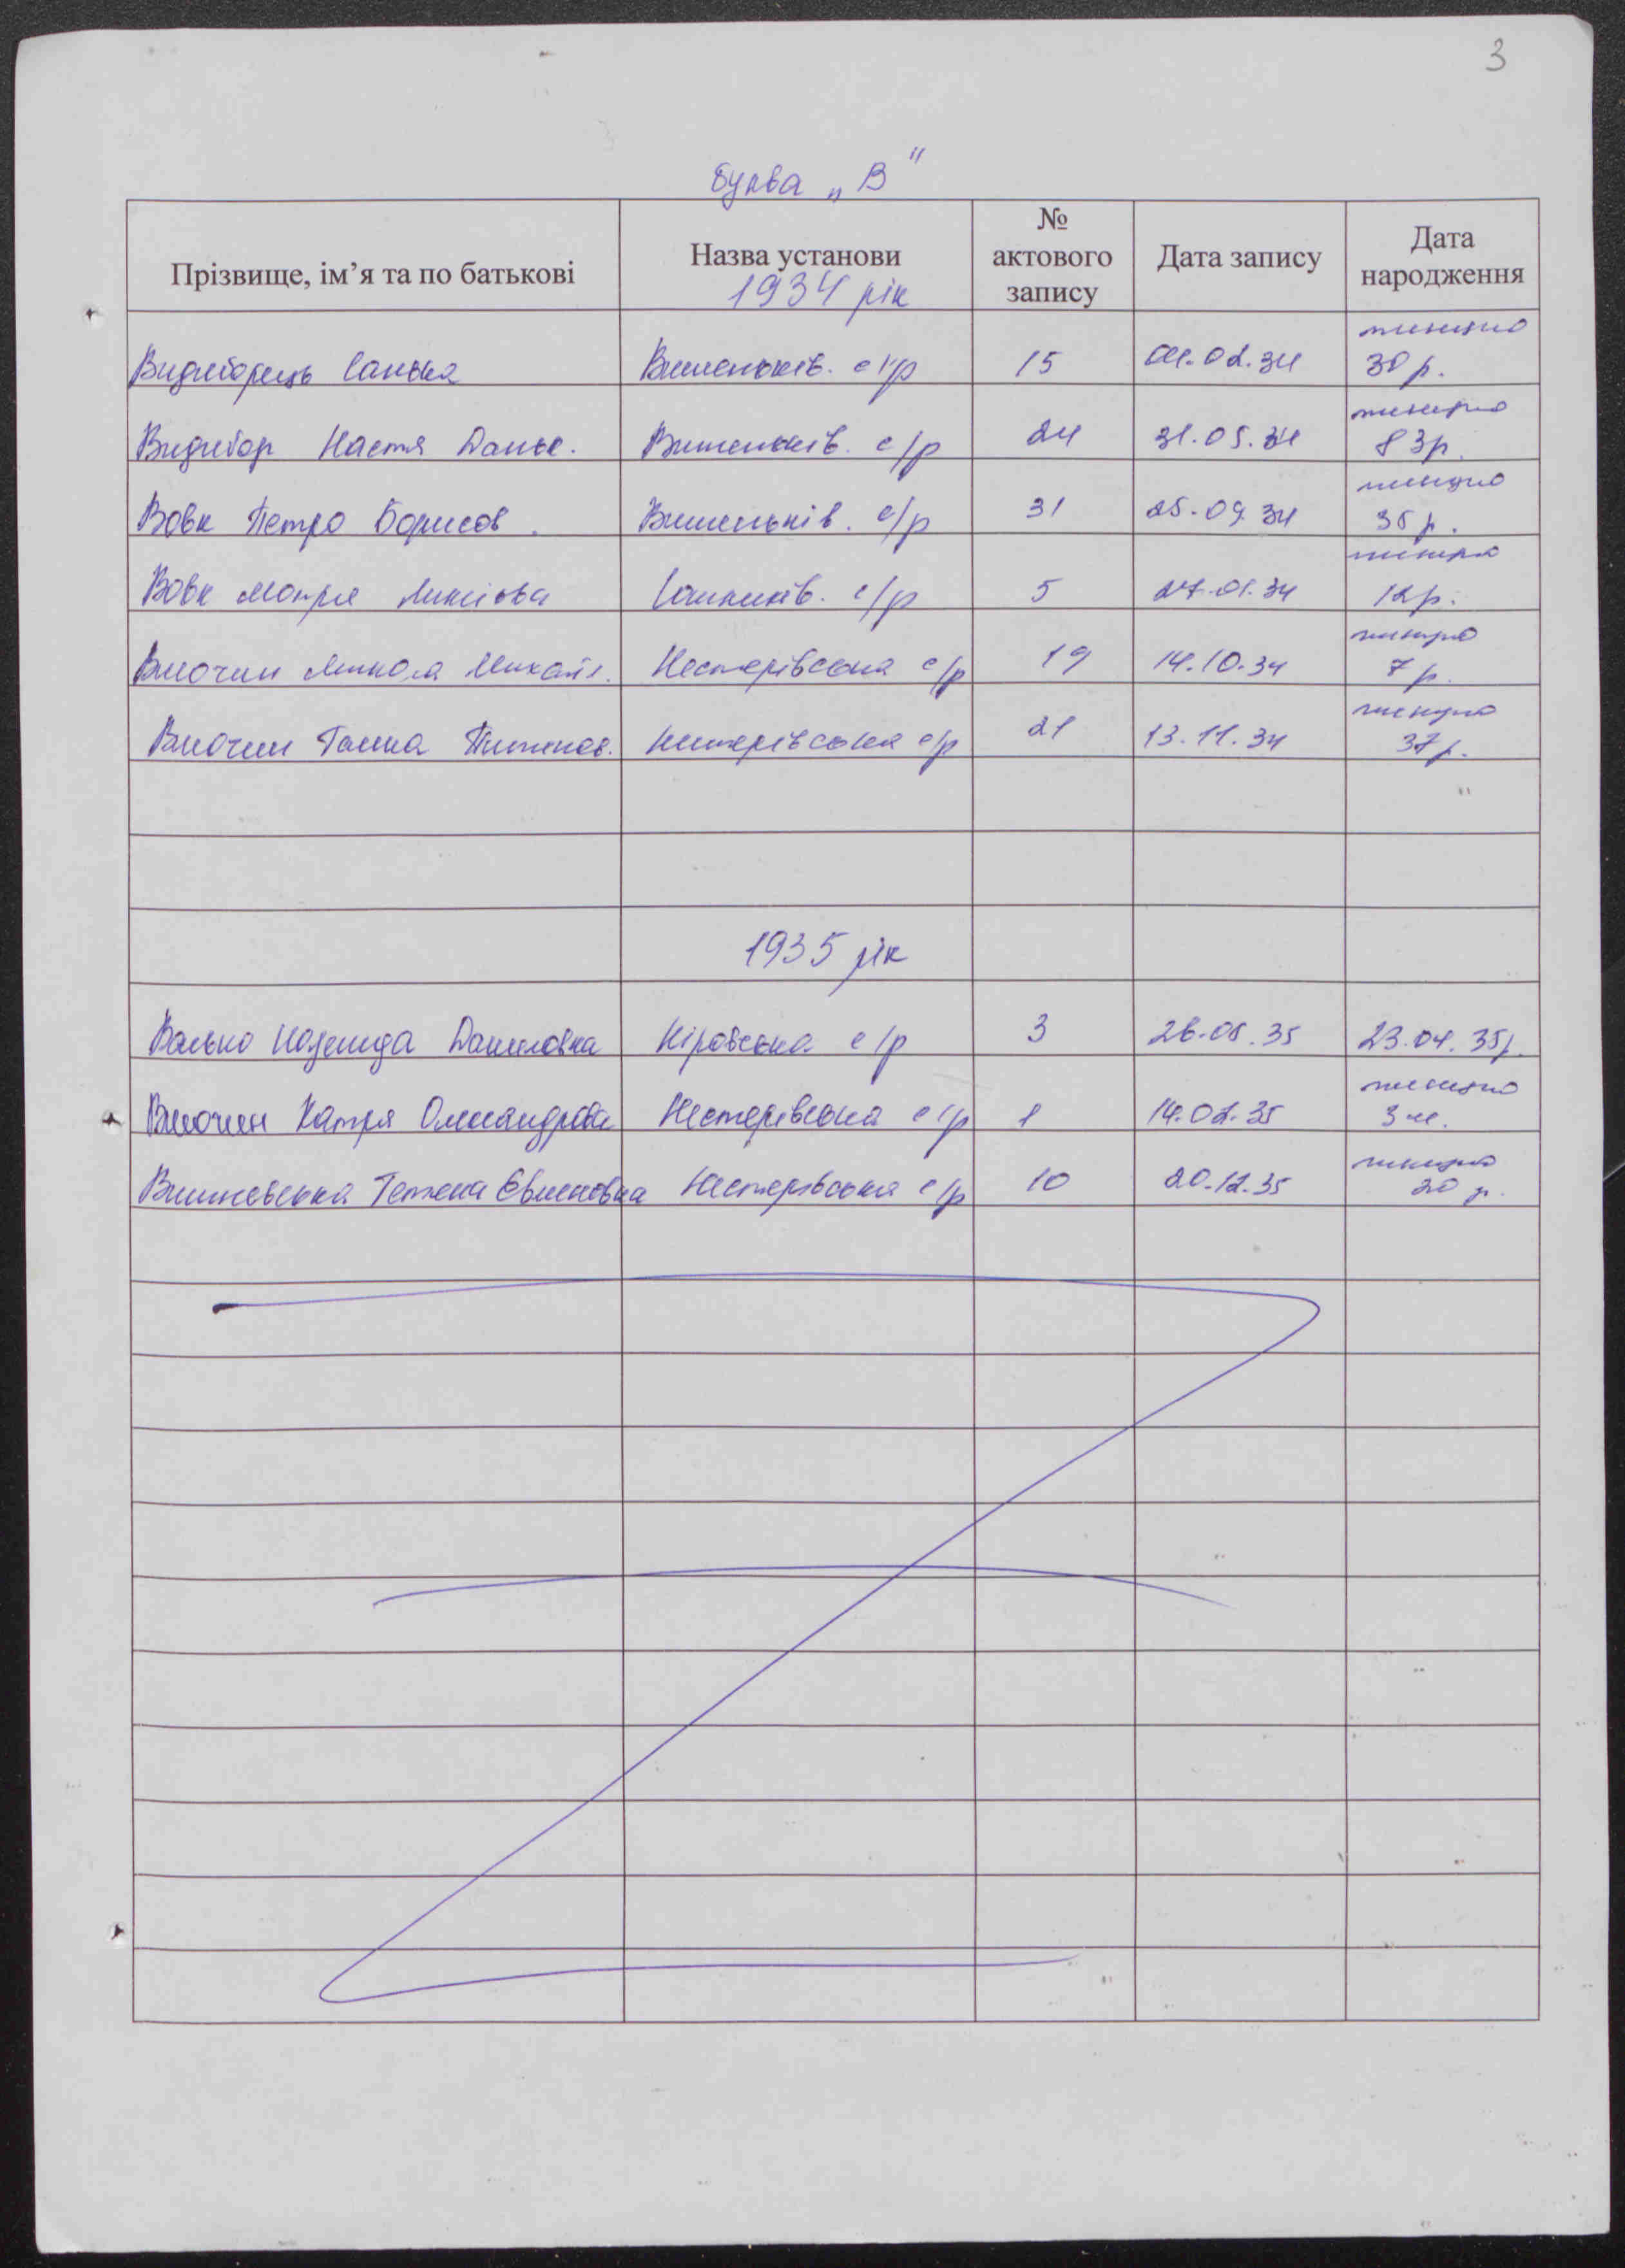 3
буква „В"
Прізвище, ім’я та по батькові Назва установи № актового запису Дата запису Дата народження
1934 рік
Видиборець Санька Вишеньків. с/р 15 04.02.34 минуло 30 р.
Видибор Настя Даньк. Вишеньків. с/р 24 31.05.34 минуло 83р.
Вовк Петро Борисов. Вишеньків. с/р 31 25.09.34 минуло 35 р.
Вовк Мотря с/р 5 27.01.34 минуло 12р.
Микола Михайл. Нестерівська с/р 19 14.10.34 минуло 7 р.
Ганна Нестерівська с/р 21 13.11.34 минуло 37 р.
1935 рік
Валько Надежда Даниловна Кіровська с/р 3 26.05.35 23.04.35р.
Катря Олександрівна Нестерівська с/р 1 14.02.35 минуло 3 м.
Вишневська Тетяна Нестерівська с/р 10 20.12.35 минуло 20 р.